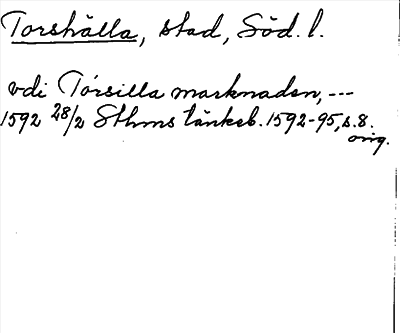 Torshälla, stad, Söd. l.
vdi Tórsilla marknaden, ---
1592 28/2 Sthms tänkeb. 1592-95, s. 8.
orig.